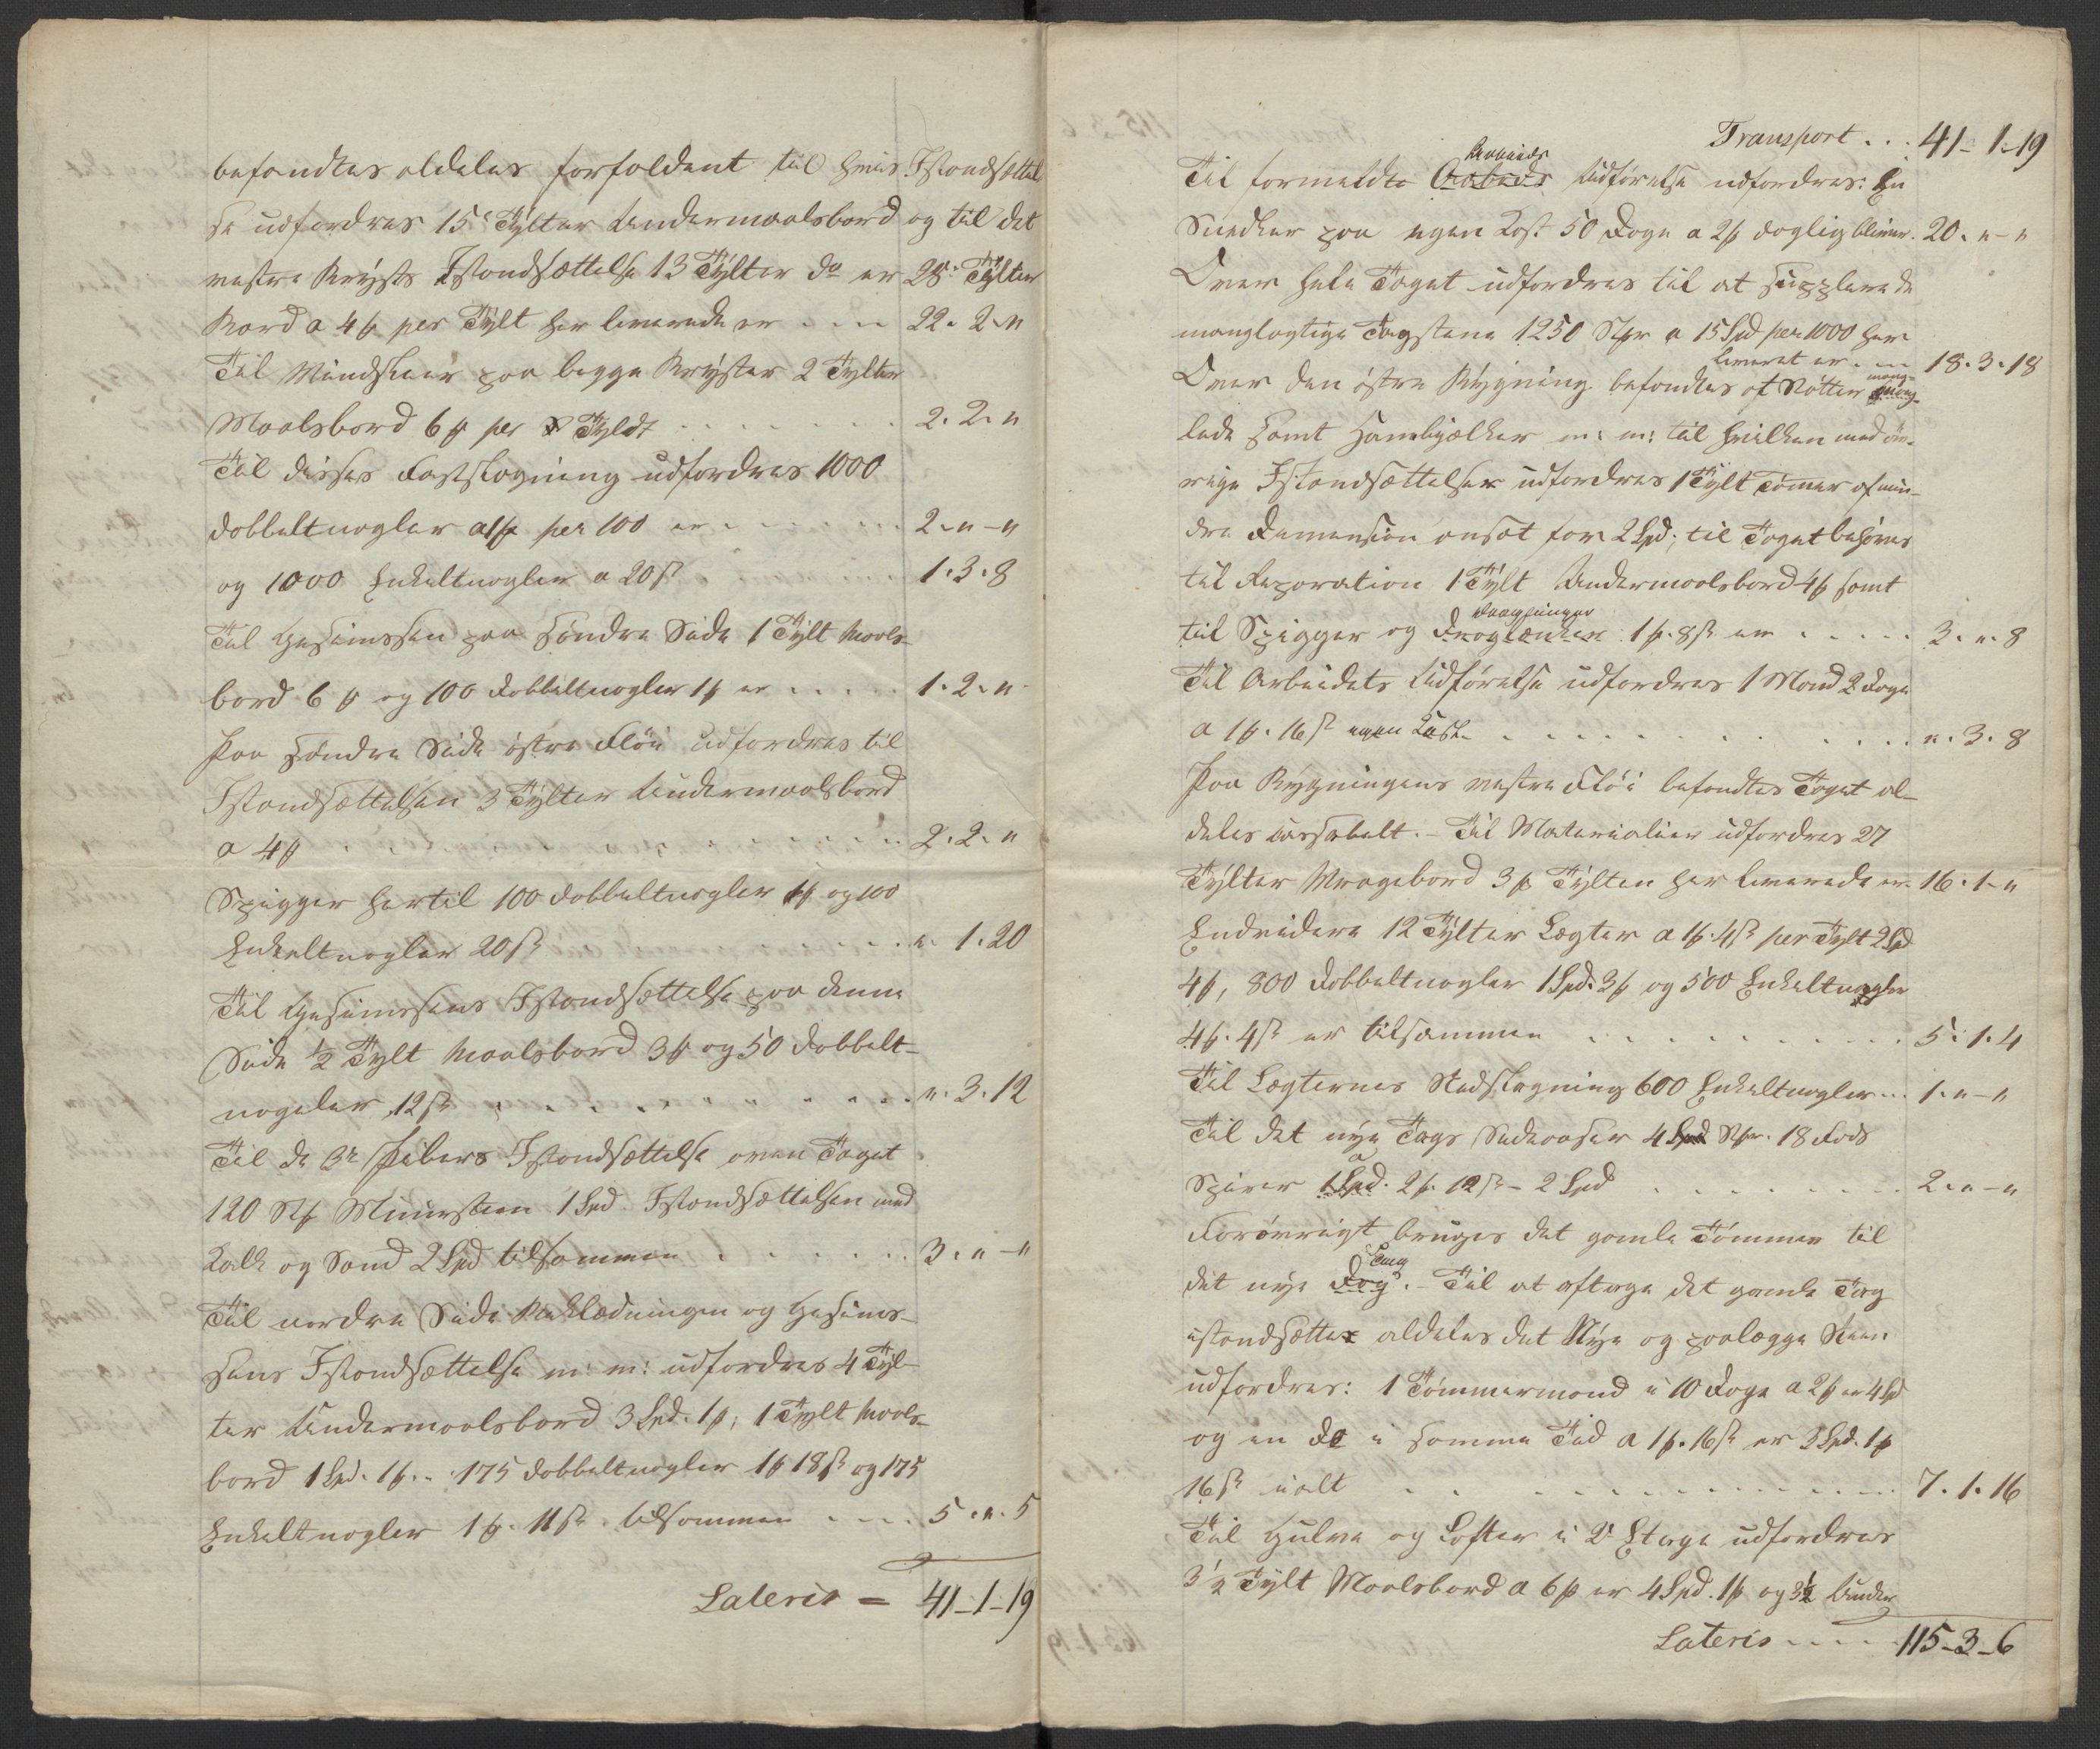 befandtes aldeles forfaldent til hvis Istandsættel
se udfordres 15 Tylter Undermaalsbord og til det
vestre Røysts Istandsættelse 13 Tylter do er 28 Tylter
Bord a 4 ß per Tylt her leverede er . . . 22. 2. "
Til Vindskier paa begge Røyster 2 Tylter
Maalsbord 6 ß per Tyldt . . . 2. 2. "
Til disses Fastslagning udfordres 1000
dobbeltnagler a 1ß per 100 er . . . 2 - " - "
og 1000 Enkeltnagler a 20 s . . . 1. 3. 8
Til Gesimssen paa søndre Side 1 Tylt Maals-
bord 6 ß og 100 Dobbeltnagler 1ß er . . . 1. 2. "
Paa søndre Side østre Fløi udfordres til
Istandsættelsen 3 Tylter Undermaalsbord
a 4ß . . . 2. 2. "
Spigger hertil 100 dobbeltnagler 1ß og 100
Enkeltnagler 20 s . . . ". 1. 20
Til Gesimssens Istandsættelse paa denne
Side ½ Tylt Maalsbord 3ß og 50 dobbelt-
nageler 12 s . . . ". 3. 12
Til de Pibers Istandsættelse oven Taget
120 Stk Muursteen 1 Spd. Istandsættelsen med
Kalk og Sand 2 Spd tilsammen . . . 3. " - "
Til nordre Side Beklædningen og Gesims-
sens Istandsættelse m: m: udfordres 4 Tyl-
ter Undermaalsbord 3 Spd. 1ß, 1 Tylt Maals-
bord 1 Spd. 1ß. - 175 dobbeltnagler 1ß 18 s og 175
Enkeltnagler 1ß. 11 s. tilsammen . . . 5. ". 5
Lateris = 41 - 1 - 19
Transport . . . 41 - 1 - 19
Arbeids
Til formeldte Udførelse udfordres: En
Snedker paa egen Kost 50 Dage a 2ß daglig bliver. 20. " - "
Over hele Taget udfordres til at supplere de
manglagtige Tagstene 1250 Stkr a 15 Spd per 1000 her
leveret er . . . 18. 3. 18
Over den østre Bygning befandtes at Røtter mang-
lede samt Hanebjælker m: m: til hvilken med øv-
rige Istandsættelser udfordres 1 Tylt Tømer af min-
dre Demension ansat for 2 Spd; til Taget behøves
til Reparation 1 Tylt Undermaalsbord 4ß samt
til Spigger og 1ß. 8 s er . . . 3. ". 8
Til Arbeidets Udførelse udfordres 1 Mand 2 Dage
a 1ß. 16 s egen Kost . . . ". 3. 8
Paa Bygningens vestre Fløi befandtes Taget al-
deles casabelt. - Til Materialier udfordres 27
Tylter Vragebord 3ß Tylten her leverede er 16. 1 - "
Endvidere 12 Tylter Lægter a 1ß. 4 s per Tylt 2 Spd
4ß, 800 Dobbeltnagler 1 Spd. 3ß og 500 Enkeltnagler
4ß. 4 s er tilsammen . . . 5. 1. 4
Til Lægternes Stedslagning 600 Enkeltnagler . . . 1. " - "
Til det nye Tags Sideraaser 4 Stkr. 18 Fods
Spirer a 2ß. 12 s - 2 Spd . . . 2. " - "
Forøvrigt bruges det gamle Tømmer til
det nye Tag. - Til at aftage det gamle Tag
istandsætte aldeles det Nye og paalægge Steen
udfordres: 1 Tømmermand i 10 Dage a 2ß er 4 Spd
og en do i samme Tid a 1ß. 16 s er 3 Spd. 1ß
16 s ialt . . . 7. 1. 16
Til Gulve og Lofter i 2 Etage udfordres
3½ Tylt Maalsbord a 6ß er 4 Spd. 1ß og 3½ Under
Lateris . . . 115 - 3 - 6